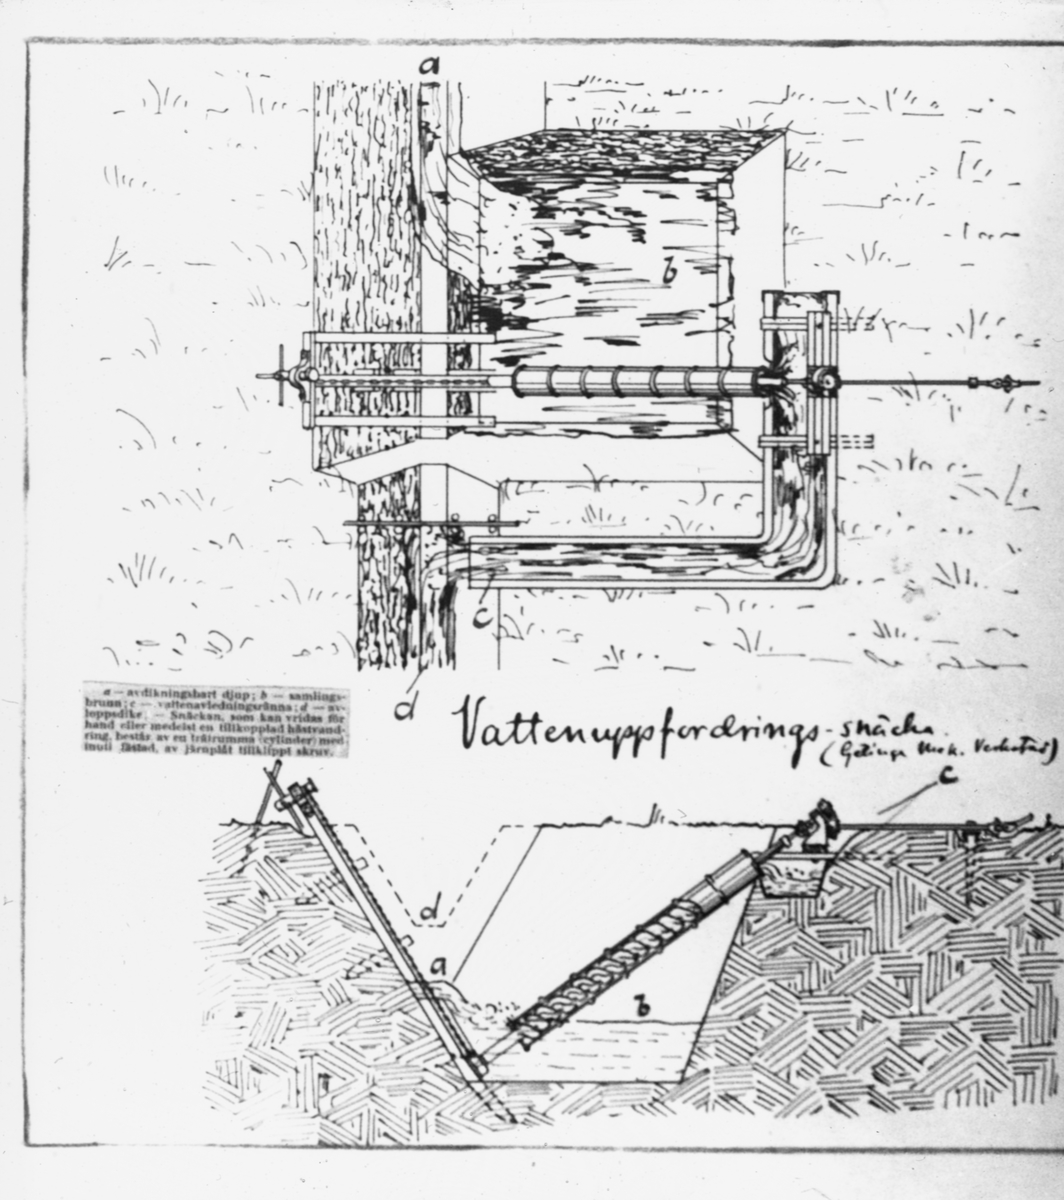 a
b
c
d
a — avdikningsbart djup; b — samlings-
brunn; c — vattenavledningsränna; d — av-
loppsdike. — Snäckan, som kan vridas för
hand eller medelst en tillkopplad hästvand-
ring, består av en trätrumma (cylinder) med
inuti fästad, av järnplåt tillklippt skruv.
Vattenuppfordrings-snäcka.
(Getinge Mek. Verkstad)
c
d
a
b